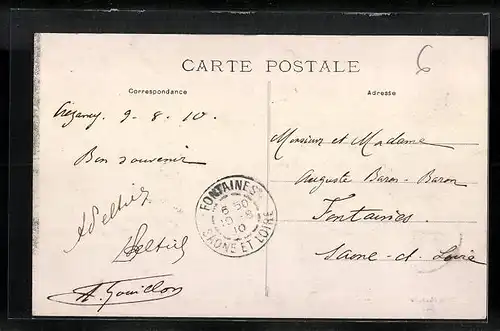 CARTE POSTALE
Correspondance
Adresse
6
9-8-10.
Bon souvenir
Monsieur et Madame
Auguste Baron-Baron
Fontaines
Saone-et-Loire
FONTAINES
10-8
10
SAONE ET LOIRE